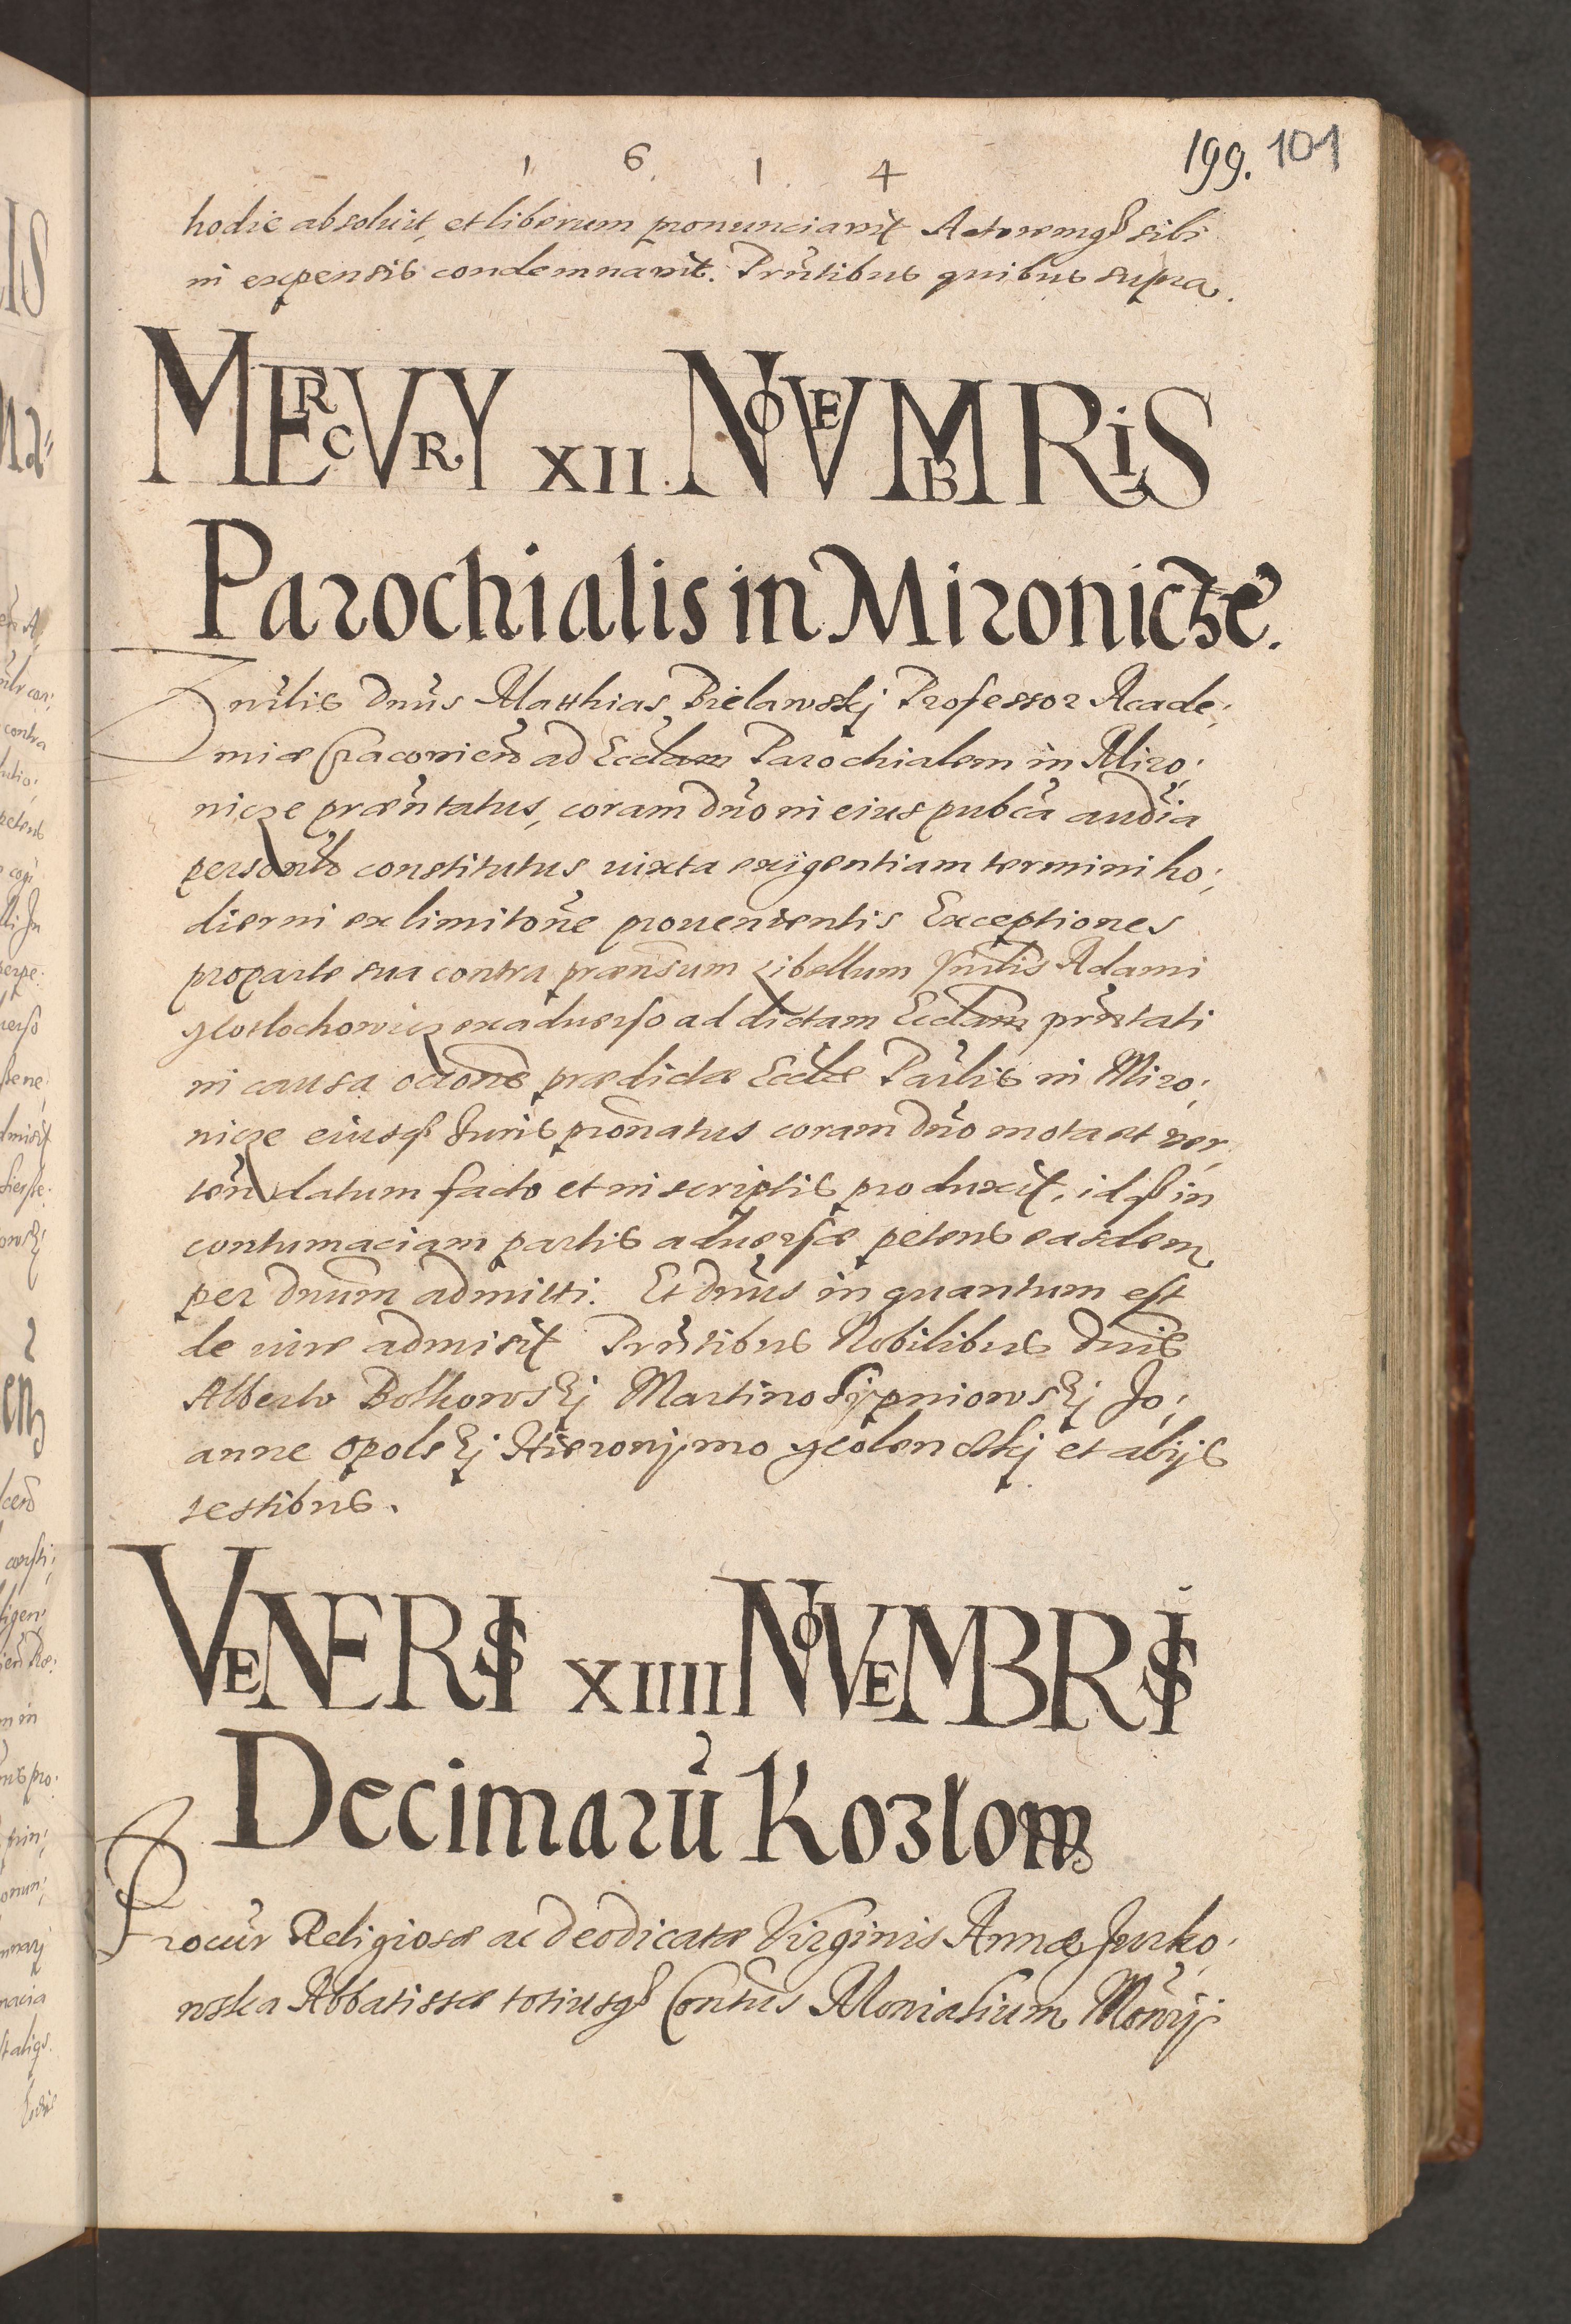 1 6. 1. 4
199. 101
hodie absoluit, et liberum pronunciavit Actoremqȝ sibi
in expensis condemnavit. Prñtibus quibus supra.
MERCVRY XII NOVEMBRIS
Parochialis in Mironicze.
nr̃lis Dnus Matthias Bielawskj Professor Acade;
miæ Cracovień ad Eccłam Parochialem in Miro;
nicze præñtatus, coram dño in eius pubca audia
personlr constitutus iuxta exigentiam termini ho;
dierni ex limitõne prouenientis Exceptiones
pro parte sua contra præñsum Libellum Adami
exaduerso ad dictam Eccłam prñtati
in causa ocõne prædictæ Eccłæ Parlis in Miro;
nicze eiusqȝ Juris pronatus coram dño mota et ver
teñ datum facto et in scriptis produxit, idqȝ in
contumaciam partis aduersæ petens easdem
per dnum admitti. Et dnus in quantum est
de iure admisit Prñtibus Nobilibus Dnis
Alberto Bolkowskj Martino Sypniowskj Jo;
anne Opolskj Hieronymo et alijs
testibus.
VENERIS XIIII NOVEMBRIS
Decimarũ Kozlow
Procur Religiosæ ac Deodicatæ Virginis Annæ Jurko;
wska Abbatissæ totiusqȝ Contus Monialium Monrij